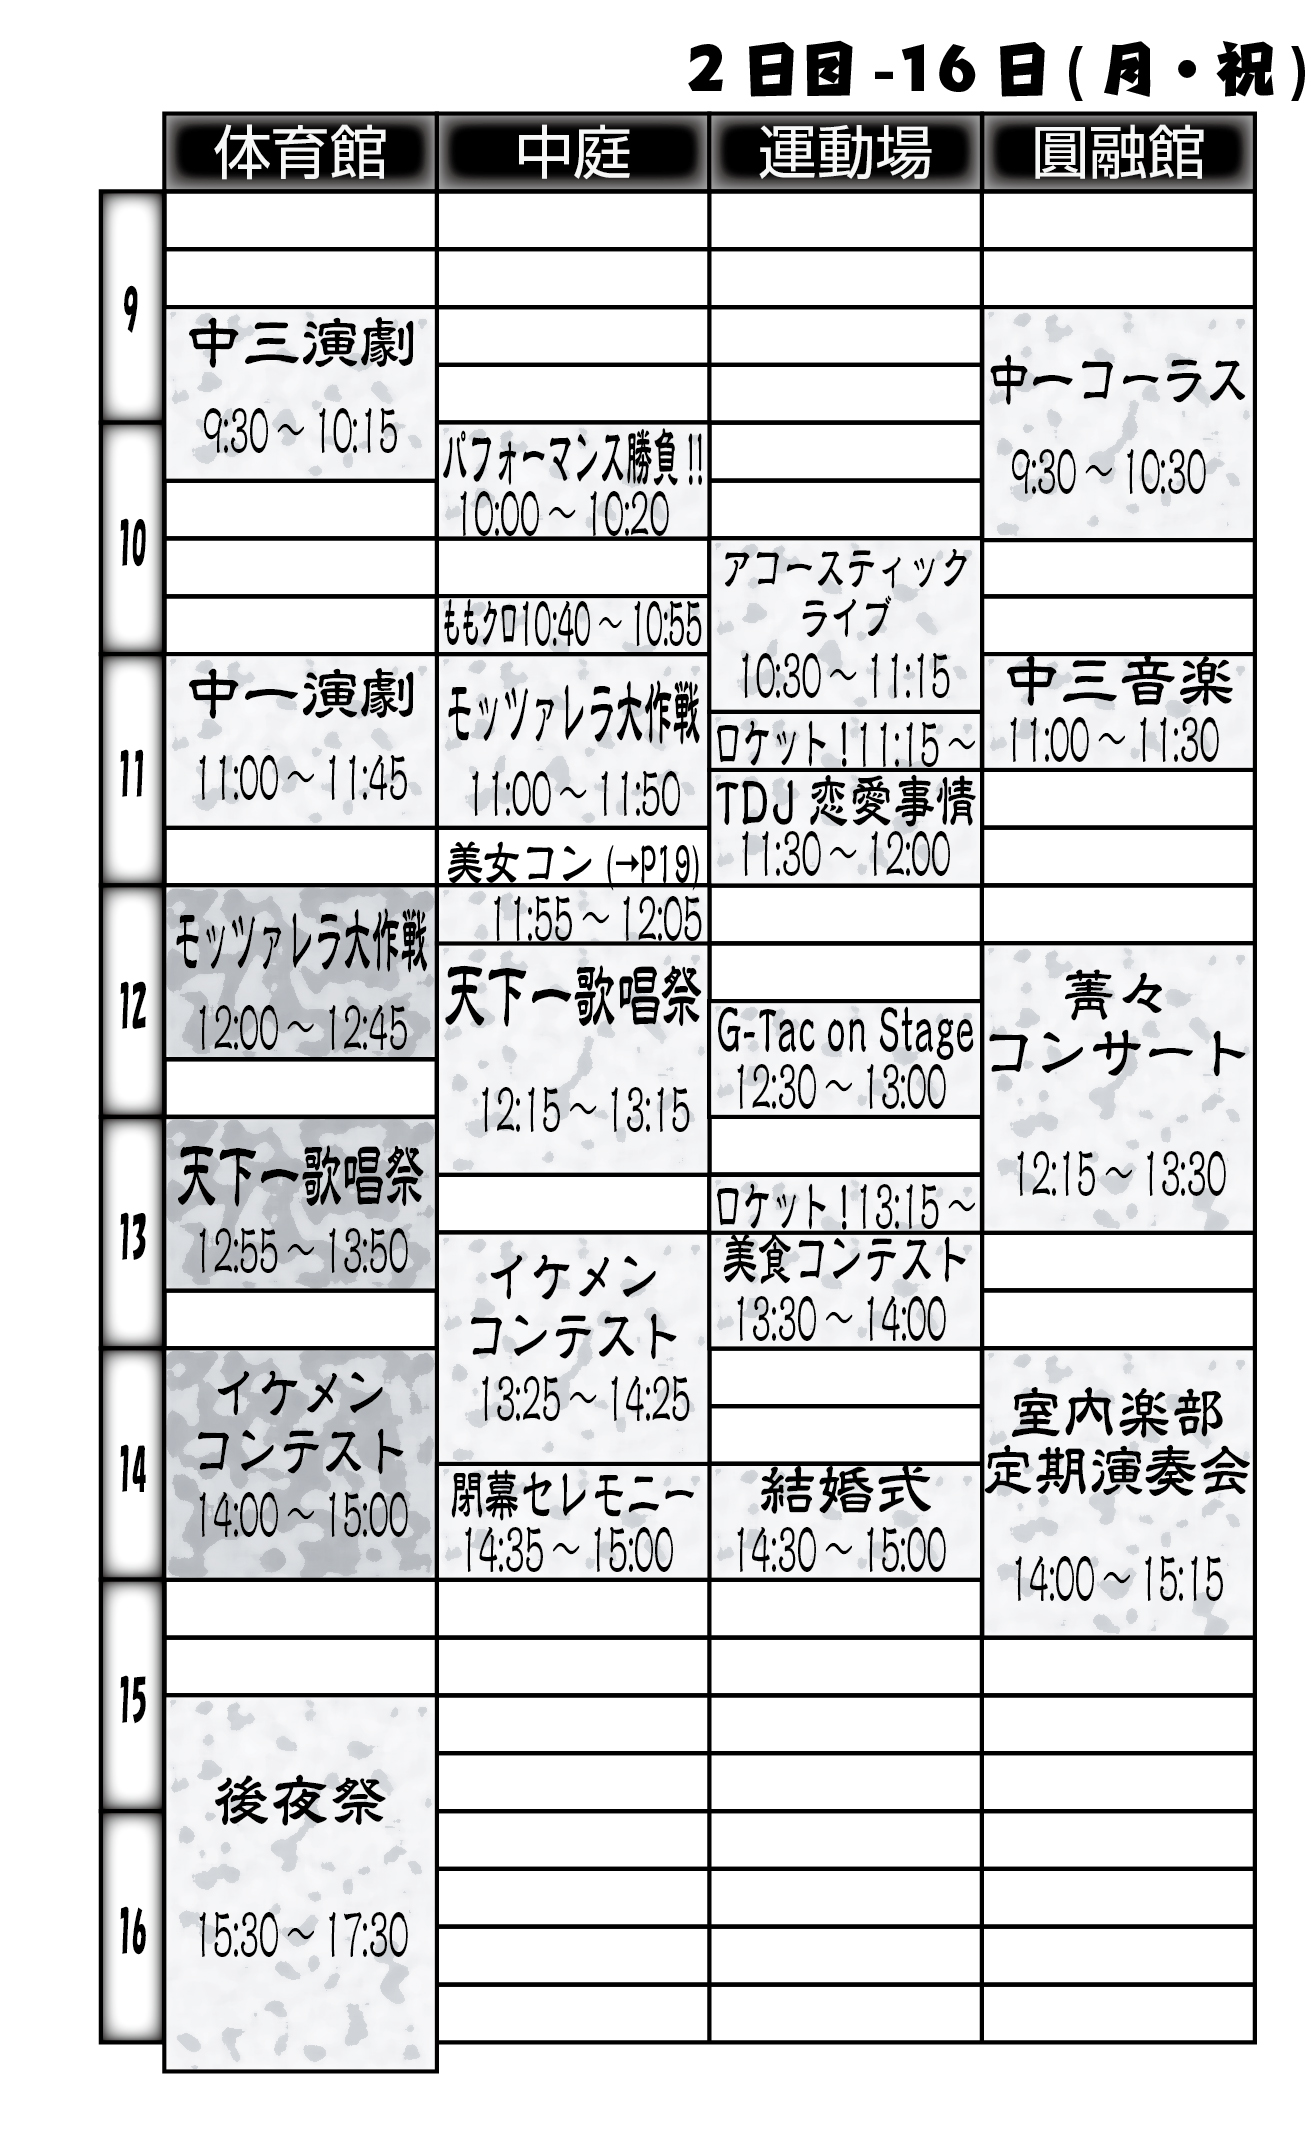 2日目-16日(月・祝)
体育館
中庭
運動場
圓融館
9
10
11
12
13
14
15
16
中三演劇
9:30～10:15
中一演劇
11:00～11:45
モッツァレラ大作戦
12:00～12:45
天下一歌唱祭
12:55～13:50
イケメン
コンテスト
14:00～15:00
後夜祭
15:30～17:30
パフォーマンス勝負!!
10:00～10:20
ももクロ10:40～10:55
モッツァレラ大作戦
11:00～11:50
美女コン(→P19)
11:55～12:05
天下一歌唱祭
12:15～13:15
イケメン
コンテスト
13:25～14:25
閉幕セレモニー
14:35～15:00
アコースティック
ライブ
10:30～11:15
ロケット!11:15～
TDJ恋愛事情
11:30～12:00
G-Tac on Stage
12:30～13:00
ロケット!13:15～
美食コンテスト
13:30～14:00
結婚式
14:30～15:00
中一コーラス
9:30～10:30
中三音楽
11:00～11:30
菁々
コンサート
12:15～13:30
室内楽部
定期演奏会
14:00～15:15